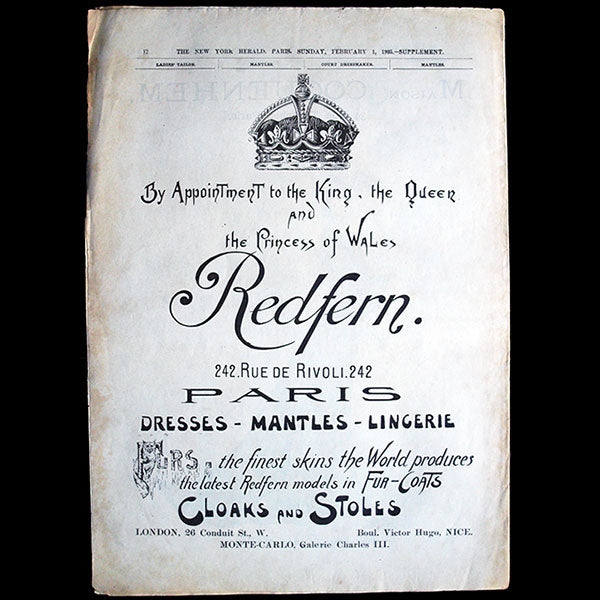 12 THE NEW YORK HERALD, PARIS, SUNDAY, FEBRUARY 1, 1903.—SUPPLEMENT.
LADIES' TAILOR. MANTLES. COURT DRESSMAKER. MANTLES.
By Appointment to the King, the Queen
and
the Princess of Wales
Redfern.
242. RUE DE RIVOLI. 242
PARIS
DRESSES - MANTLES - LINGERIE
FURS, the finest skins the World produces
the latest Redfern models in FUR-COATS
CLOAKS AND STOLES
LONDON, 26 Conduit St., W. Boul. Victor Hugo, NICE.
MONTE-CARLO, Galerie Charles III.